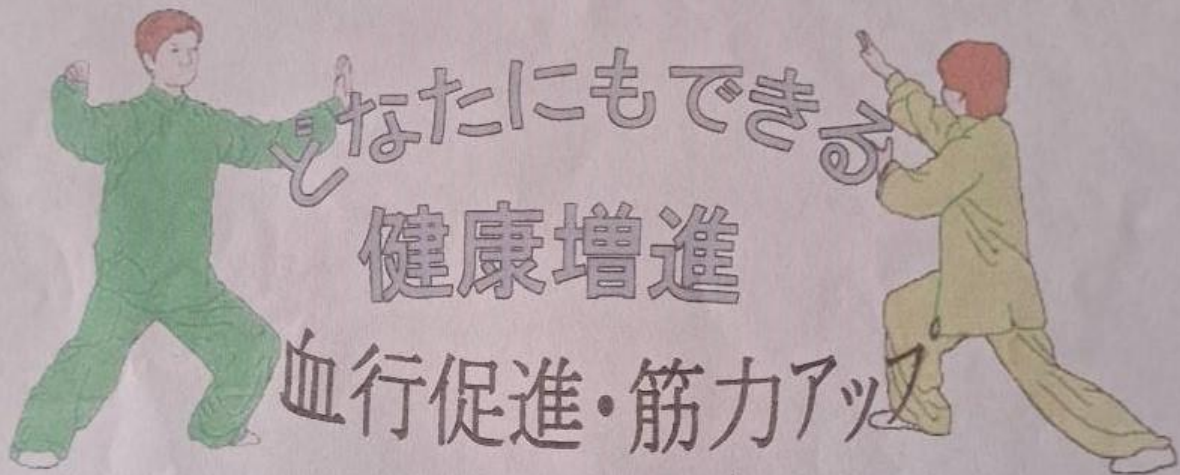 どなたにもできる
健康増進
血行促進・筋力アップ